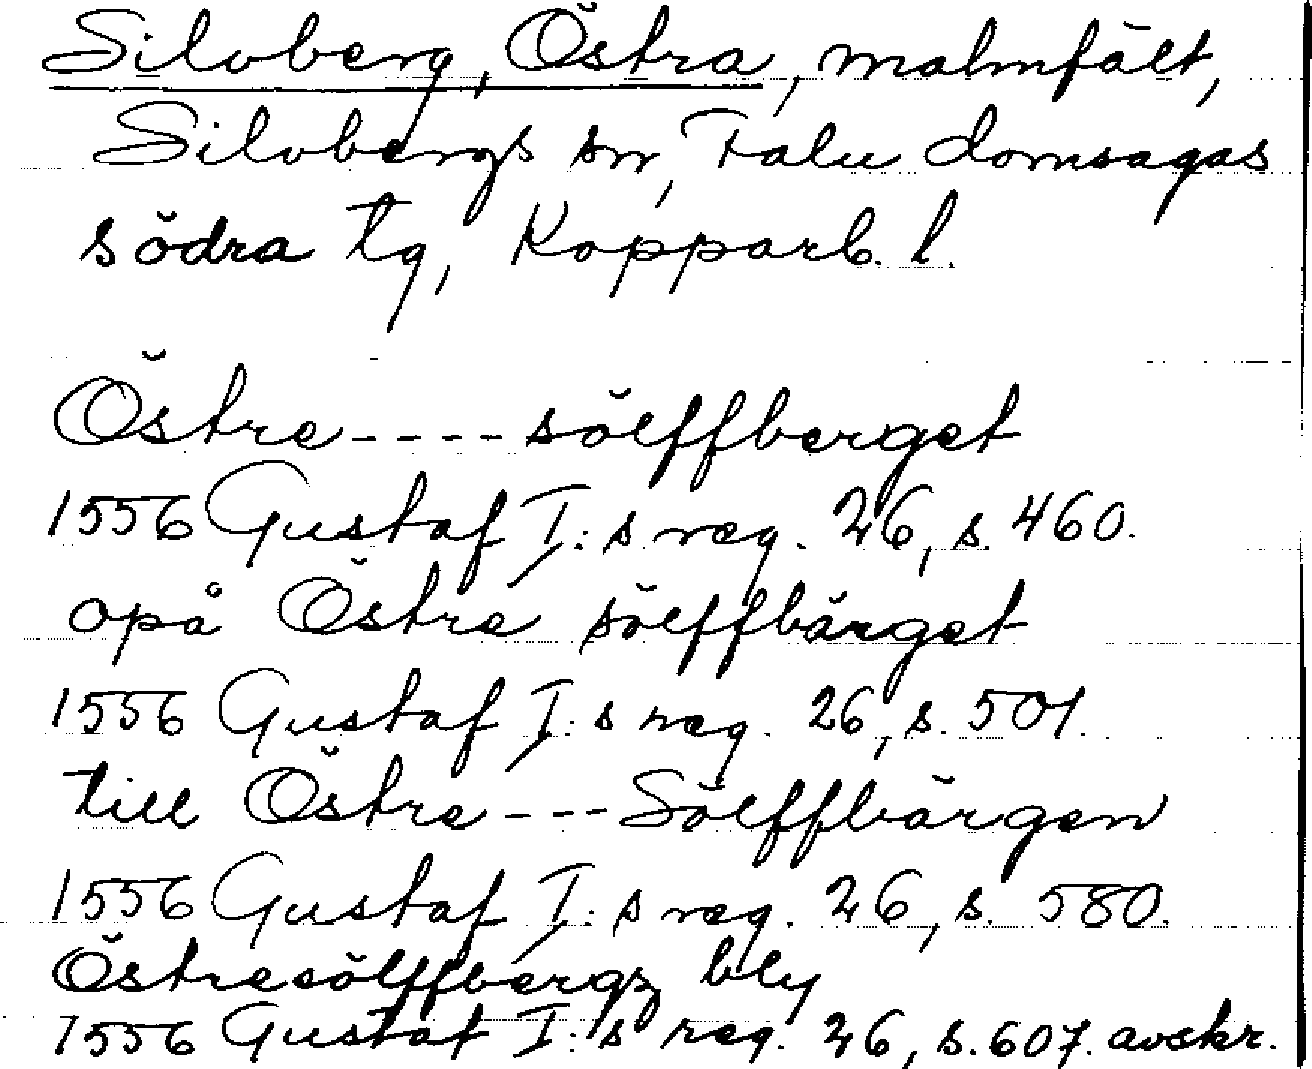 Silvberg, Östra, malmfält,
Silvbergs sn, Falu domsagas
södra tg, Kopparb. l.
Östre---- sölffberget
1556 Gustaf I:s reg. 26, s. 460.
opå Östre sölffbärget
1556 Gustaf I:s reg. 26, s. 501.
till Östre --- Sölffbärgen
1556 Gustaf I:s reg. 26, s. 580.
Östresölffbergz bly
1556 Gustaf I:s reg. 26, s. 607. avskr.